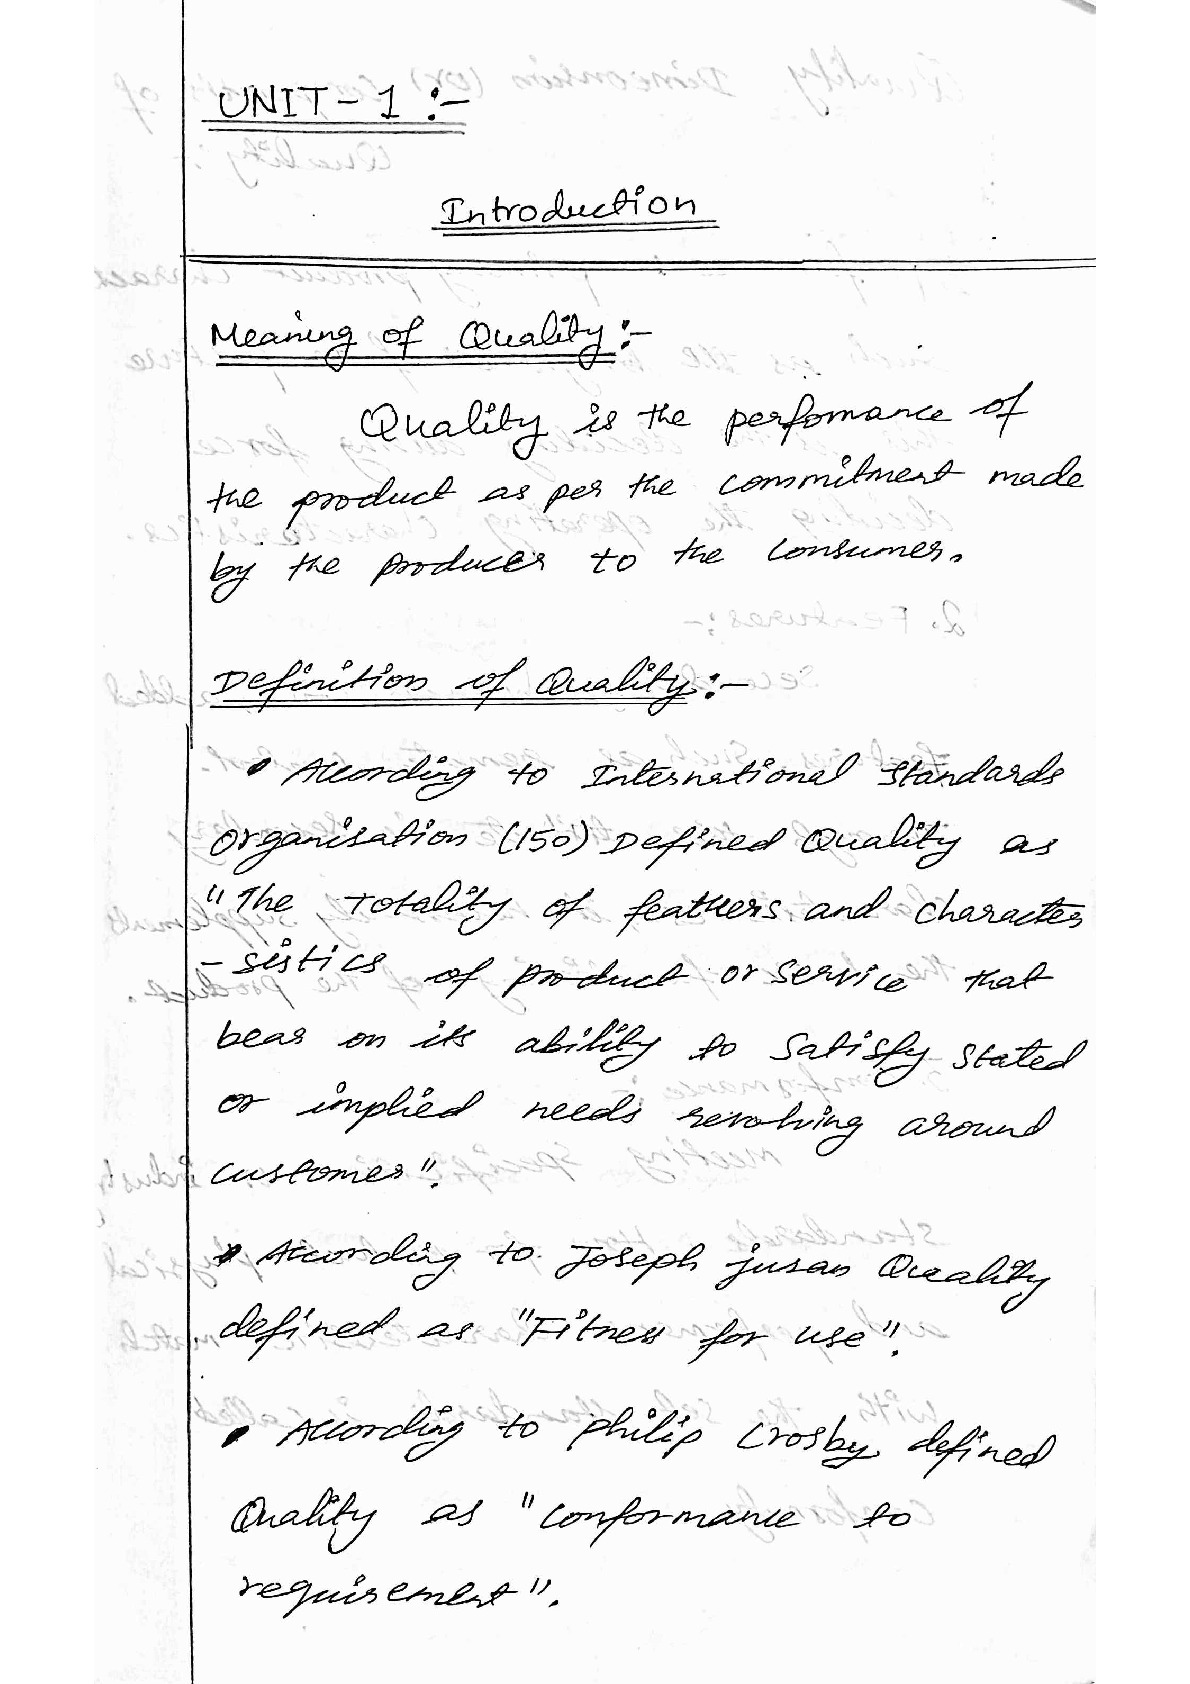 UNIT - 1 :-
Introduction
Meaning of Quality :-
Quality is the perfomance of
the product as per the commitment made
by the producer to the consumer.
Definition of Quality :-
• According to International Standards
Organisation (ISO) Defined Quality as
"The Totality of feathers and character
- sistics of product or service that
bear on its ability to satisfy stated
or implied needs revolving around
customer".
• According to Joseph juran Quality
defined as "Fitness for use".
• According to philip Crosby defined
Quality as "conformance to
requirement".